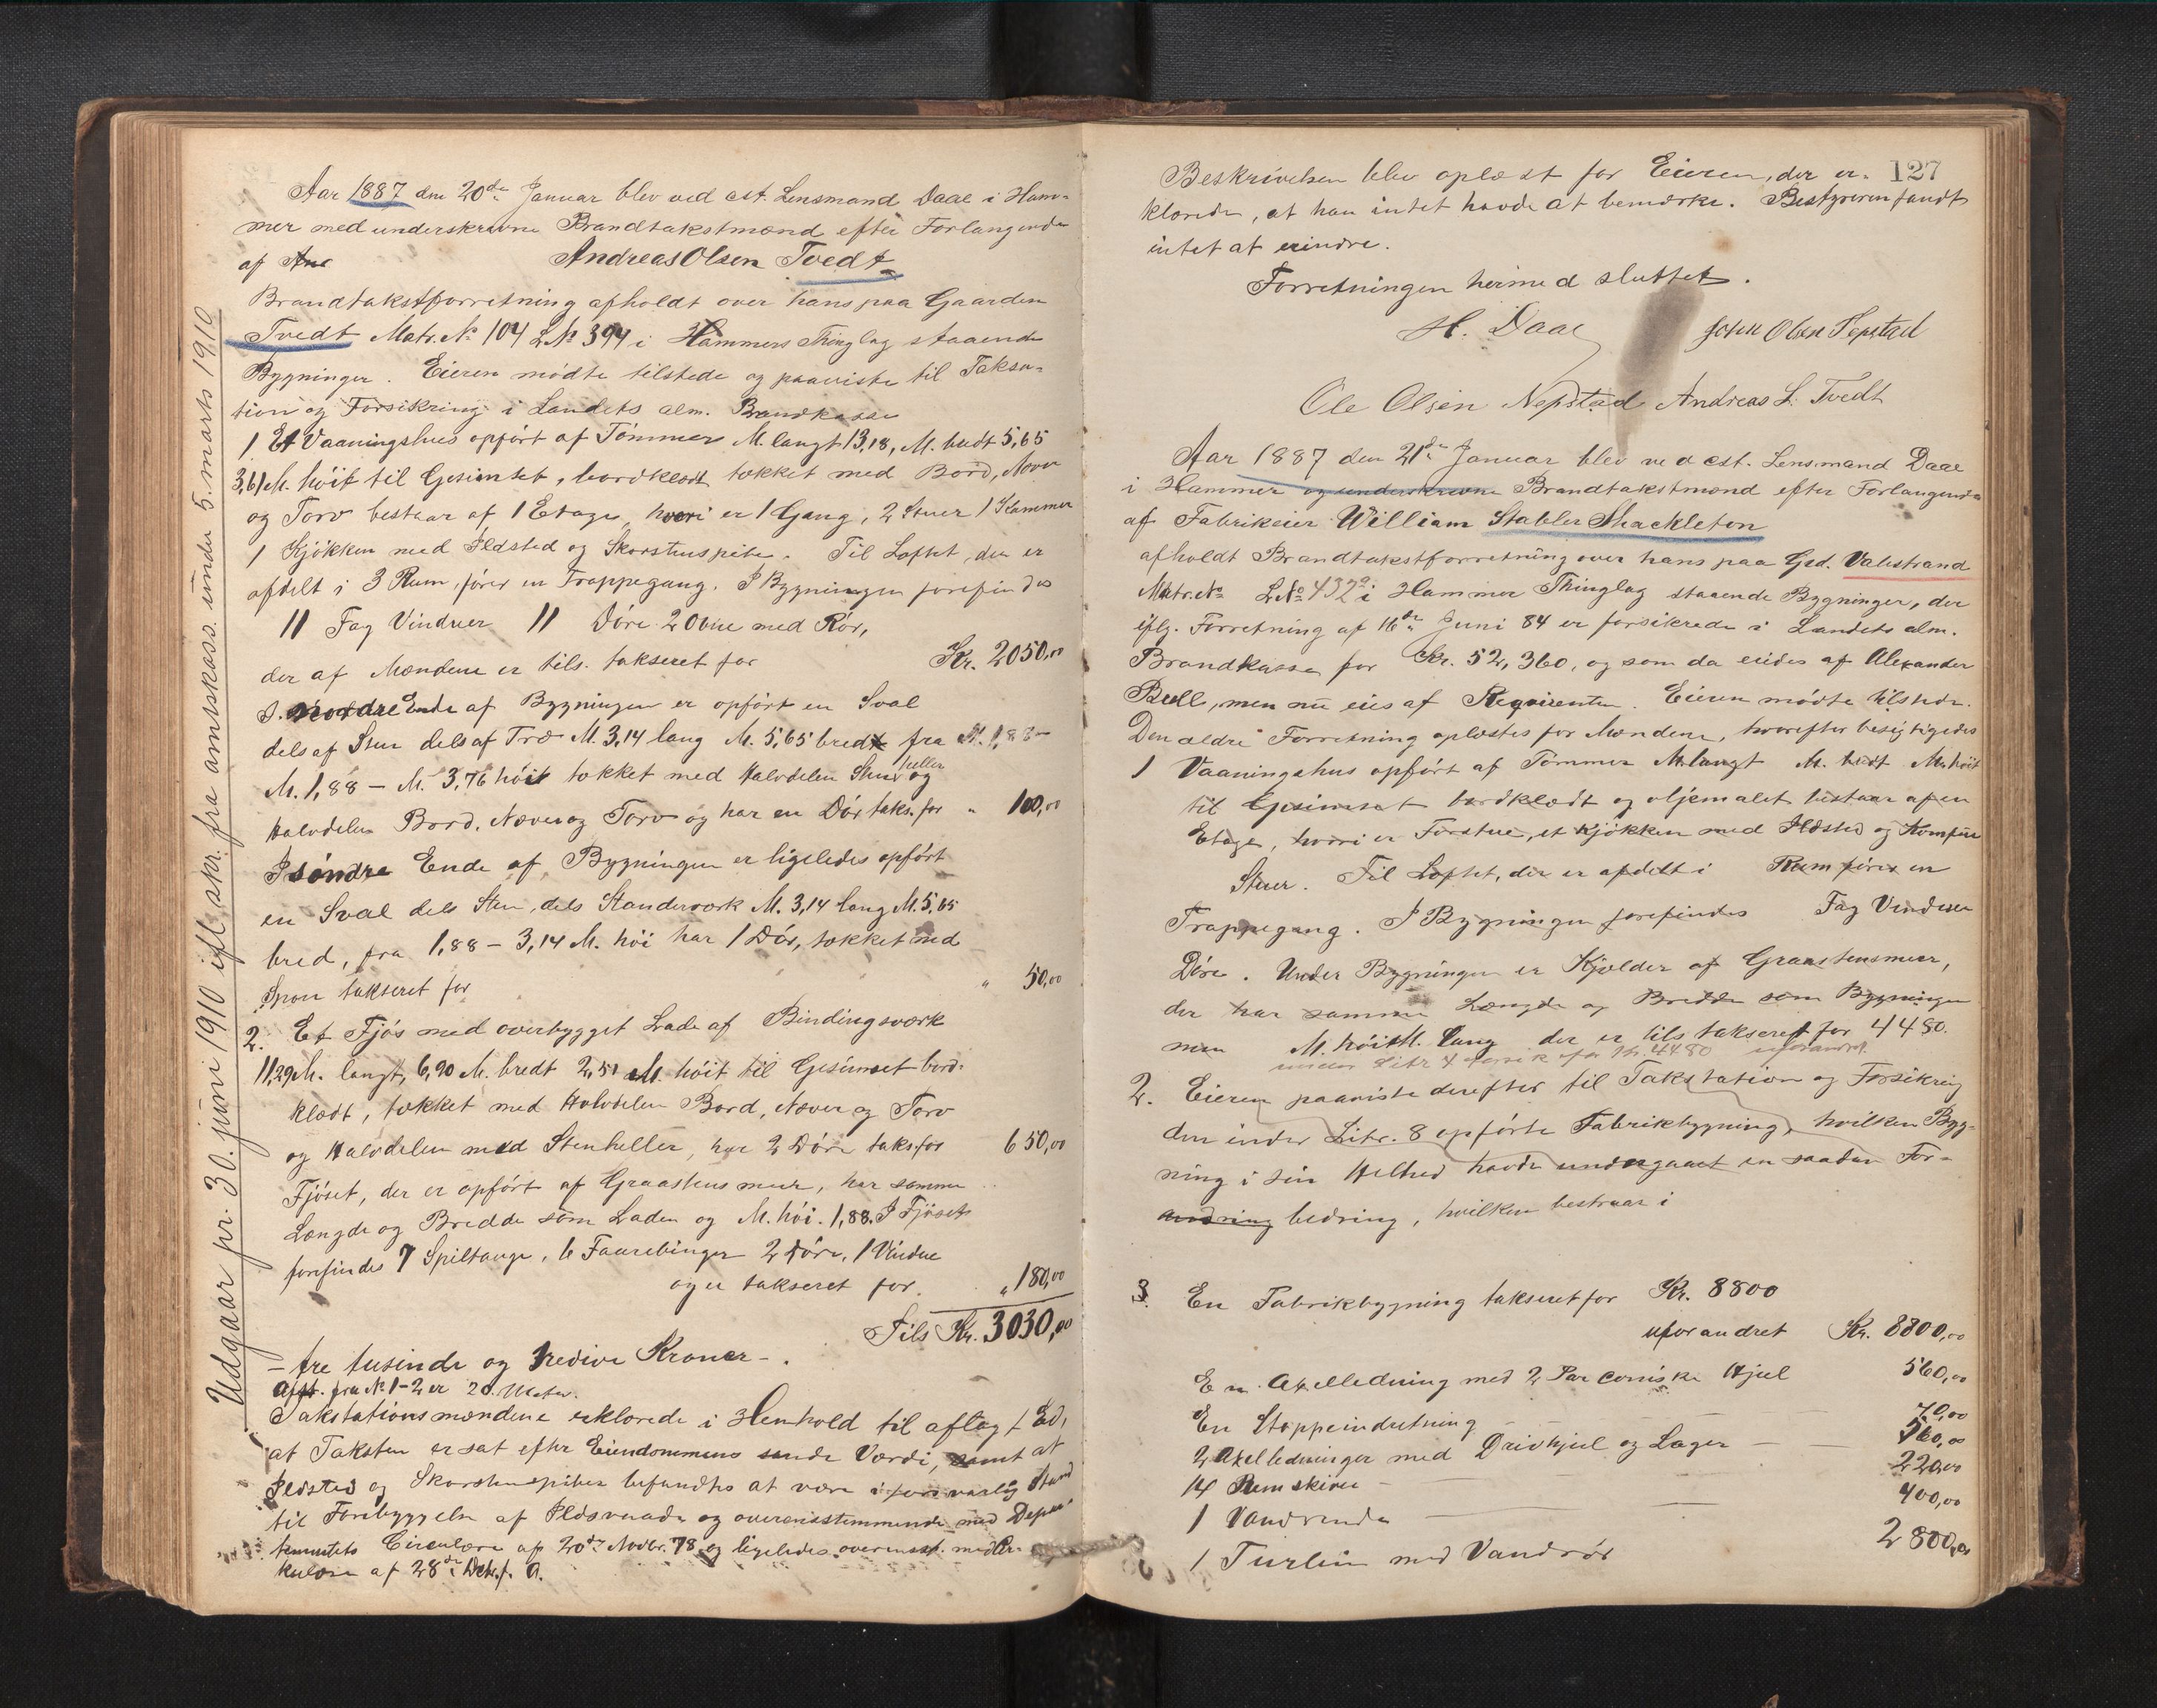 Udgaar pr. 30. juni 1910 ifl. skr. fra amtskass. under 5. marts 1910
Aar 1887 den 20de Januar blev ved cst. Lensmand Daae i Ham-
mer med underskrevne Brandtakstmænd efter Forlangende
af Ane Andreas Olsen Tvedt
Brandtakstforretning afholdt over hans paa Gaarden
Tvedt Matr. No 104 LNo 394 i Hammers Thinglag staaende
Bygninger. Eieren mødte tilstede og paaviste til Taksa-
tion og Forsikring i Landets alm. Brandkasse
1 Et Vaaningshus opført af Tømmer M. langt 13,18, M. bredt 5,65
3,61 M. høit til Gesimset, bordklædt tækket med Bord, Næver
og Torv bestaar af 1 Etage, hvori er 1 Gang, 2 Stuer 1 Kammer
1 Kjøkken med Ildsted og Skorstenspibe. Til Loftet, der er
afdelt i 3 Rum, fører en Trappegang. I Bygningen forefindes
11 Fag Vinduer 11 Døre 2 Ovne med Rør,
der af Mændene er tils. takseret for Kr. 2050,00
I. nordre Ende af Bygningen er opført en Sval
dels af Sten dels af Træ M. 3,14 lang M. 5,65 bred fra M. 1,88 -
M. 1,88 - M. 3,76 høit tækket med Halvdelen Sten heller og
Halvdelen Bord, Næver og Torv og har en Dør taks. for " 100,00
I søndre Ende af Bygningen er ligeledes opført
en Sval dels Sten, dels Standerværk M. 3,14 lang M. 5,65
bred, fra 1,88 - 3,14 M. høi har 1 Dør, tækket med
Spon takseret for " 50,00
2. Et Fjøs med overbygget Lade af Bindingsværk
11,29 M. langt, 6,90 M. bredt 2,51 M. høit til Gesimset bord-
klædt, tækket med Halvdelen Bord, Næver og Torv
og Halvdelen med Stenheller, har 2 Døre taks. for 650,00
Fjøset, der er opført af Graastensmur, har samme
Længde og Bredde som Laden og M. høi. 1,88. I Fjøset
forefindes 7 Spiltauge, 6 Faarebinger 2 Døre, 1 Vindue
og er takseret for. " 180,00
Tils Kr. 3030,00
- tre tusinde og tredive Kroner - .
Afst. fra No 1-2 er 20 Meter.
Takstationsmændene erklærede i Henhold til aflagt Ed,
at Taksten er sat efter Eiendommens sande Værdi, samt at
Ildsted og Skorstenspiber befandtes at være i forsvarlig Stand
til Forebyggelse af Ildsvaade og overensstemmende med Depar-
tementets Circulære af 20de Novbr. 78 og ligeledes overensst. med Cir-
kulære af 28de Decbr. f. A.
127
Beskrivelsen blev oplæst for Eieren, der er-
klærede, at han intet havde at bemærke. Bestyreren fandt
intet at erindre.
Forretningen hermed sluttet.
H. Daae Johan Olsen Tepstad
Ole Olsen Nepstad Andreas L. Tvedt
Aar 1887 den 21de Januar blev ved cst. Lensmand Daae
i Hammer og underskrevne Brandtakstmænd efter Forlangende
af Fabrikeier William Stabler Shackleton
afholdt Brandtakstforretning over hans paa Grd. Valestrand
Matr. No LNo 432a i Hammer Thinglag staaende Bygninger, der
iflg. Forretning af 16de Juni 84 er forsikrede i Landets alm.
Brandkasse for Kr. 52,360, og som da eiedes af Alexander
Bull, men nu eies af Requirenten. Eieren mødte tilstede.
Den ældre Forretning oplæstes for Mændene, hvorefter besigtigedes
1 Vaaningshus opført af Tømmer M. langt M. bredt M. høit
til Gesimset bordklædt og oljemalet bestaar af en
Etage, hvori er Forstue, et Kjøkken med Ildsted og Komfur
Stuer. Til Loftet, der er afdelt i Rum fører en
Trappegang. I Bygningen forefindes Fag Vinduer
Døre. Under Bygningen er Kjælder af Graastensmur,
der har samme Længde og Bredde som Bygningen
men M. høi M. lang der er tils takseret for 4480.
under Litr. 4 forsik. for Kr. 4480 uforandret.
2. Eieren paaviste derefter til Takstation og Forsikring
den under Litr. 8 opførte Fabrikbygning, hvilken Byg-
ning i sin Helhed havde undergaaet en saadan For-
andring bedring, hvilken bestaar i
3. En Fabrikbygning takseret for Kr. 8800
uforandret Kr. 8800,00
En Axelledning med 2 Par coniske Hjul 560,00
En Stoppeindretning - - - 70,00
2 Axelledninger med Drivhjul og Lager - - 560,00
14 Remskiver - 220,00
1 Vandrende - - - 400,00
1 Turbin med Vandrør 2800,00